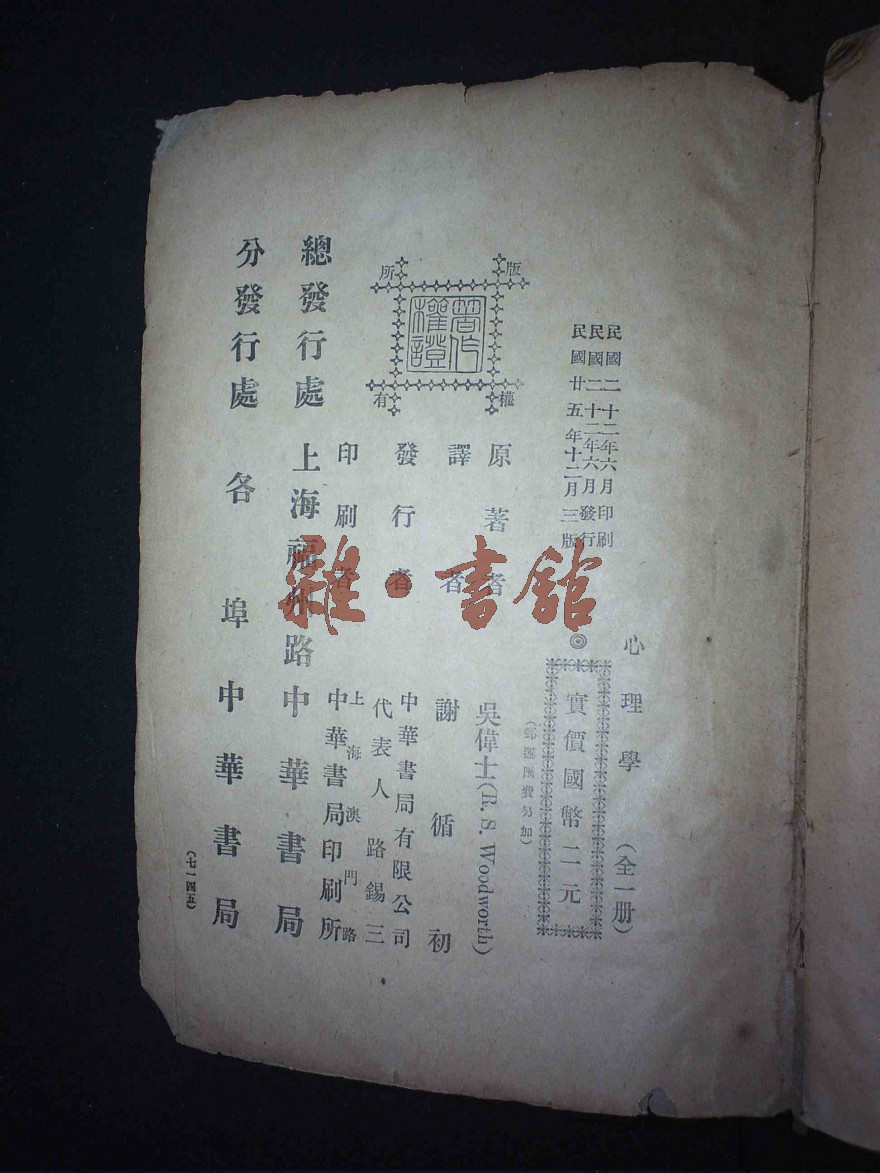 民國二十二年六月印刷
民國二十二年六月發行
民國廿五年十二月三版
心理學（全一册）
◎實價國幣二元
（郵運匯費另加）
版權所有
著作權證
原著者 吳偉士(R. S. Woodworth)
譯者 謝循初
發行者 中華書局有限公司
代表人 路錫三
印刷者 上海澳門路
中華書局印刷所
總發行處 上海福州路 中華書局
分發行處 各埠中華書局
（七一四五）
雜·書館